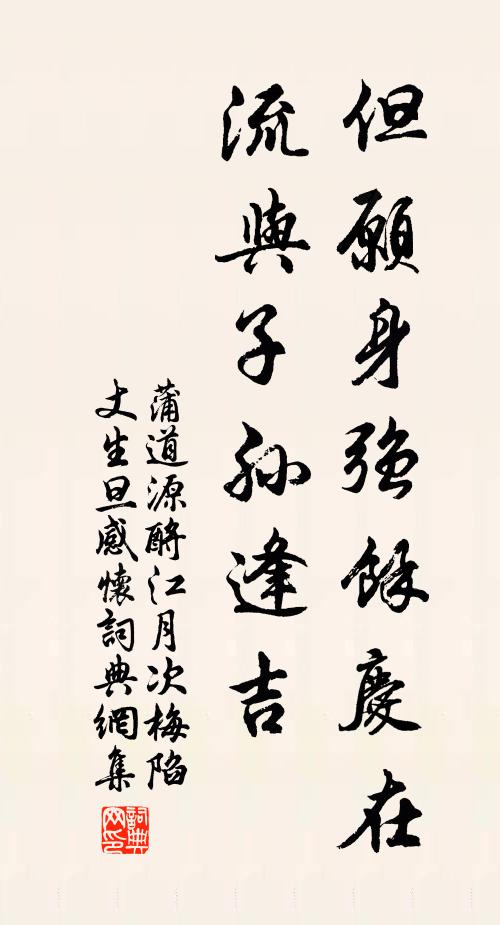 但願身強餘慶在
流與子孫逢吉
蒲道源酹江月次梅陷
丈生旦感懷詞典網集
詞典
网印